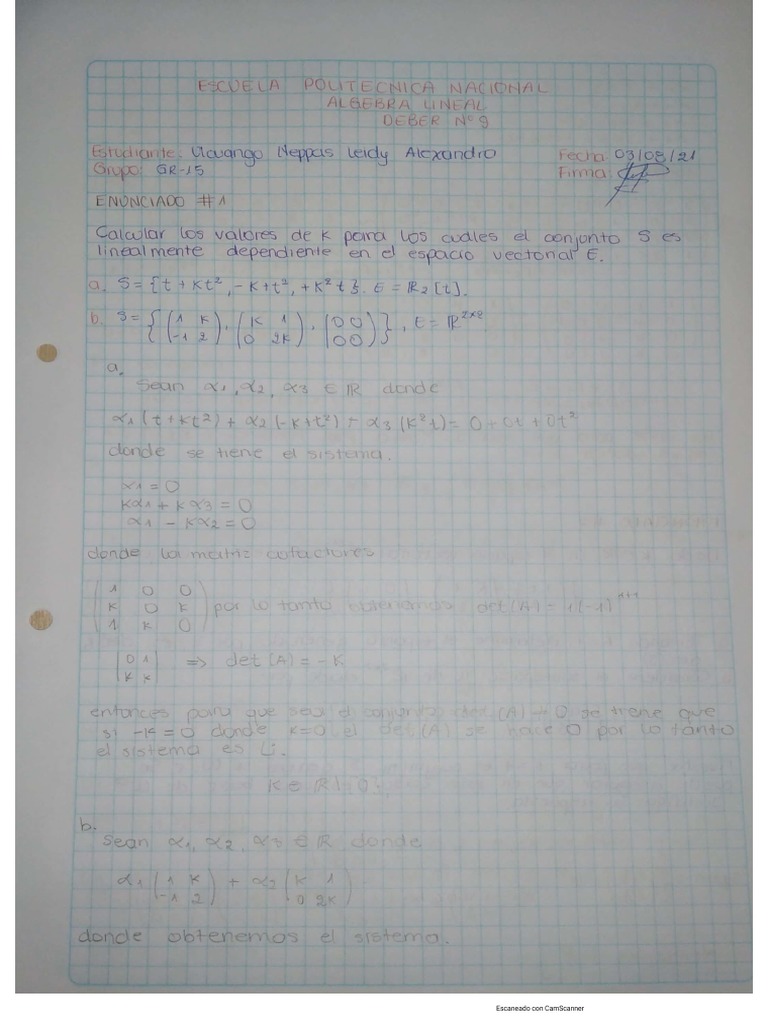 ESCUELA POLITECNICA NACIONAL
ALGEBRA LINEAL
DEBER Nº 9
Estudiante: Ulcuango Neppas Leidy Alexandra Fecha: 03/08/21
Grupo: GR-15 Firma:
ENUNCIADO #1
Calcular los valores de k para los cuales el conjunto S es
linealmente dependiente en el espacio vectorial E.
a. S = {t + kt², -k+t², +k² t}. E = ℝ₂[t].
b. S = { (1 k; -1 2), (k 1; 0 2k), (0 0; 0 0) }, E = ℝ²ˣ²
a.
Sean α1, α2, α3 ∈ ℝ donde
α1 (t+kt²) + α2 (-k+t²) - α3 (k²t) = 0 + 0t + 0t²
donde se tiene el sistema.
α1 = 0
kα1 + kα3 = 0
α1 - kα2 = 0
donde la matriz cofactores
(1 0 0; k 0 k; 1 k 0) por lo tanto obtenemos det(A) = 1(-1)¹⁺¹
|0 1; k k| ⇒ det(A) = -k
entonces para que sea el conjunto det(A) ≠ 0 se tiene que
si -k = 0 donde k=0 el det(A) se hace 0 por lo tanto
el sistema es Li.
k ∈ ℝ\{0}.
b.
Sean α1, α2, α3 ∈ ℝ donde
α1 (1 k; -1 2) + α2 (k 1; 0 2k)
donde obtenemos el sistema.
Escaneado con CamScanner